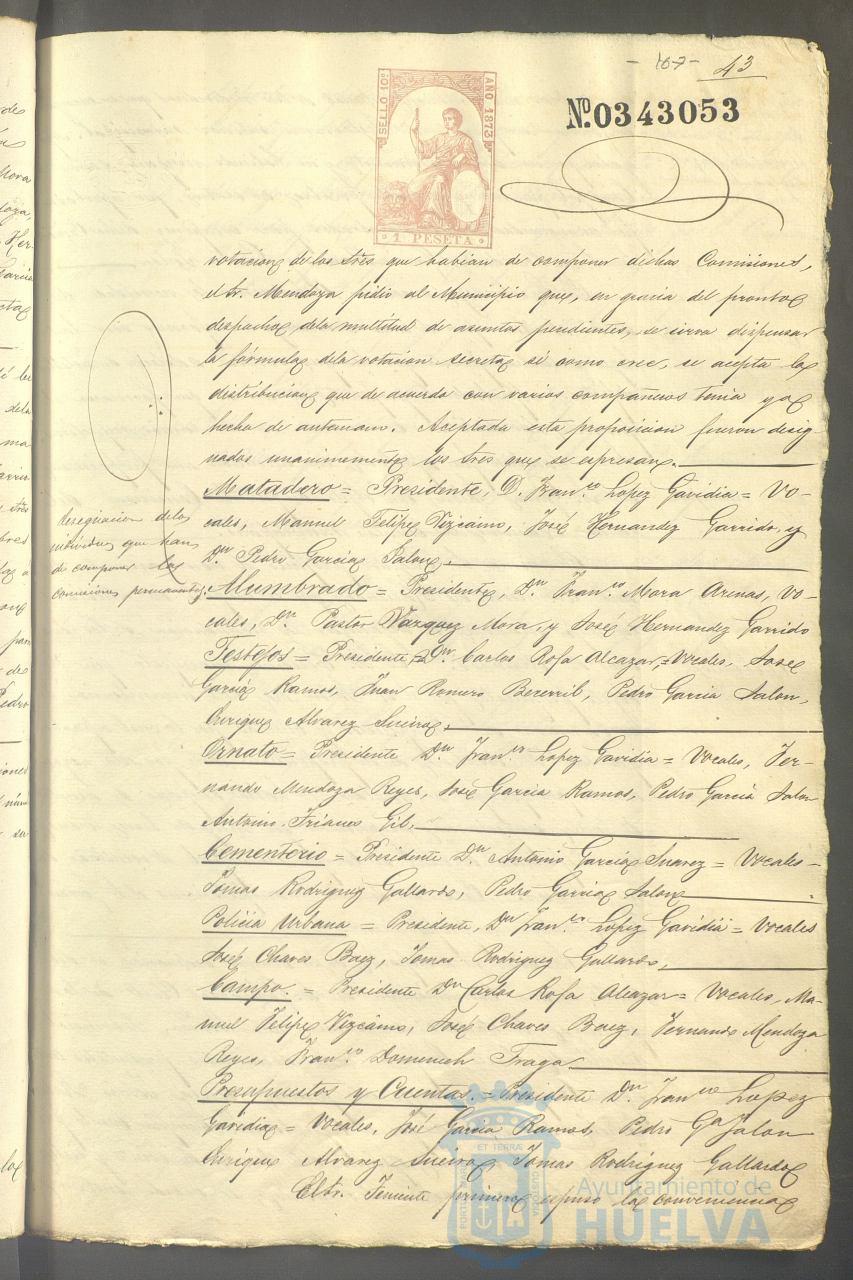 - 107 - 43
SELLO 10º AÑO 1873
1 PESETA
Nº. 0343053
votacion de los tres que habian de componer dichas Comisiones,
el Sr. Mendoza pidió al Municipio que, en gracia del pronto
despacho de la multitud de asuntos pendientes, se sirva dispensar
la fórmula de la votacion secreta si como cree, se acepta la
distribucion que de acuerdo con varios compañeros tenia ya
hecha de antemano. Aceptada esta proposicion fueron desig-
nados unanimemente los tres que se espresan.
Matadero = Presidente, D. Franco. Lopez Gavidia = Vo-
cales, Manuel Felipe Vizcaino, José Hernandez Garrido, y
Dn. Pedro Garcia Jalon.
Designacion de los
individuos que han
de componer las
comisiones permanentes.
Alumbrado = Presidente, Dn. Franco. Mora Arenas, Vo-
cales, Dn. Pastor Vazquez Mora, y José Hernandez Garrido
Festejos = Presidente = Dn. Carlos Rofa Alcazar = Vocales, José
Garcia Ramos, Juan Romero Becerril, Pedro Garcia Jalon,
Enrique Alvarez Sueiro.
Ornato = Presidente Dn. Franco. Lopez Gavidia = Vocales, Fer-
nando Mendoza Reyes, José Garcia Ramos, Pedro Garcia Jalon
Antonio Gil.
Cementerio = Presidente Dn. Antonio Garcia Suarez = Vocales -
Tomas Rodriguez Gallardo, Pedro Garcia Jalon
Policia Urbana = Presidente, Dn. Franco. Lopez Gavidia = Vocales
José Chaves Baez, Tomas Rodriguez Gallardo,
Campo. = Presidente Dn. Carlos Rofa Alcazar = Vocales, Ma-
nuel Felipe Vizcaino, José Chaves Baez, Fernando Mendoza
Reyes, Franco. Domenech Fraga.
Presupuestos y Cuentas. = Presidente Dn. Franco Lopez
Gavidia = Vocales, José Garcia Ramos, Pedro Ga Jalon
Enrique Alvarez Sueiro, Tomas Rodriguez Gallardo
El Sr. Teniente primero espuso la conveniencia
Ayuntamiento de
HUELVA